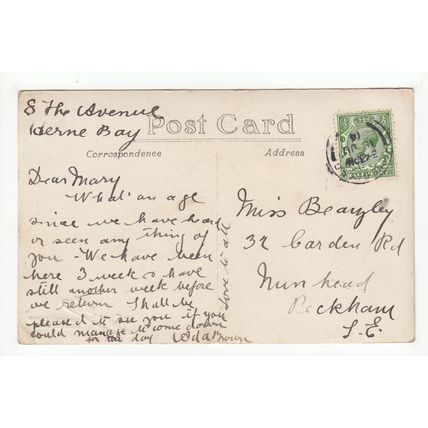 8 The Avenue
Herne Bay
Post Card
Correspondence
Address
Dear Mary
What an age
since we have heard
or seen any thing of
you - We have been
here 3 weeks & have
still another week before
we return Shall be
pleased to see you if you
could manage to come down
for the day
Ada Brown
love to all
Miss Beazley
32 Carden Rd
Nunhead
Peckham
S.E.